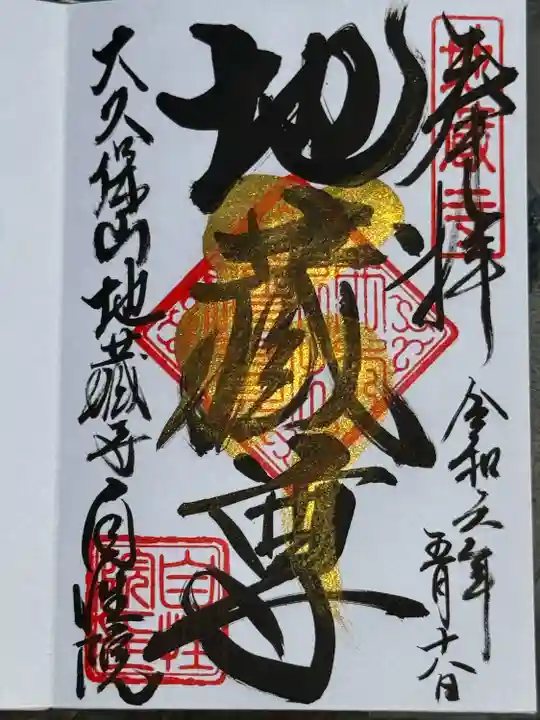 奉拝
地蔵寺
令和六年
五月十八日
地蔵尊
大久保山地蔵寺自性院
自性院